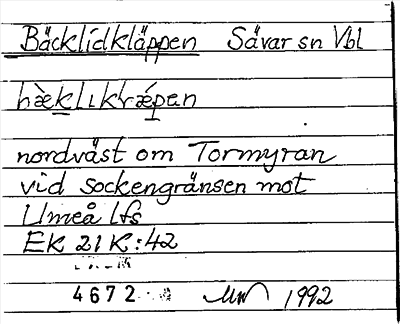 Bäcklidkläppen Sävar sn Vbl
nordväst om Tormyran
vid sockengränsen mot
Umeå lfs
EK 21K:42
4672 1992